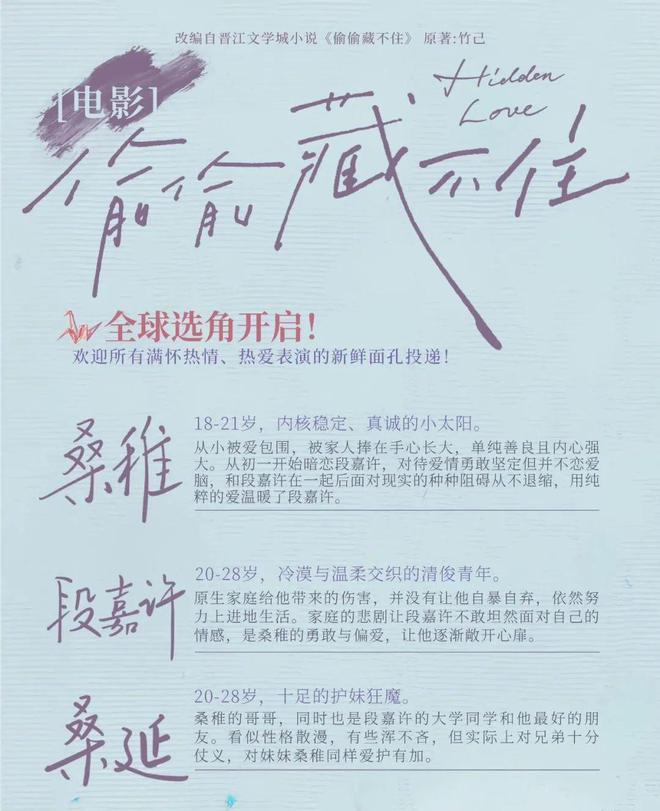 改编自晋江文学城小说《偷偷藏不住》 原著:竹己
[电影]
Hidden
Love
偷偷藏不住
全球选角开启!
欢迎所有满怀热情、热爱表演的新鲜面孔投递!
桑稚
18-21岁，内核稳定、真诚的小太阳。
从小被爱包围，被家人捧在手心长大，单纯善良且内心强
大。从初一开始暗恋段嘉许，对待爱情勇敢坚定但并不恋爱
脑，和段嘉许在一起后面对现实的种种阻碍从不退缩，用纯
粹的爱温暖了段嘉许。
段嘉许
20-28岁，冷漠与温柔交织的清俊青年。
原生家庭给他带来的伤害，并没有让他自暴自弃，依然努
力上进地生活。家庭的悲剧让段嘉许不敢坦然面对自己的
情感，是桑稚的勇敢与偏爱，让他逐渐敞开心扉。
桑延
20-28岁，十足的护妹狂魔。
桑稚的哥哥，同时也是段嘉许的大学同学和他最好的朋
友。看似性格散漫，有些浑不吝，但实际上对兄弟十分
仗义，对妹妹桑稚同样爱护有加。